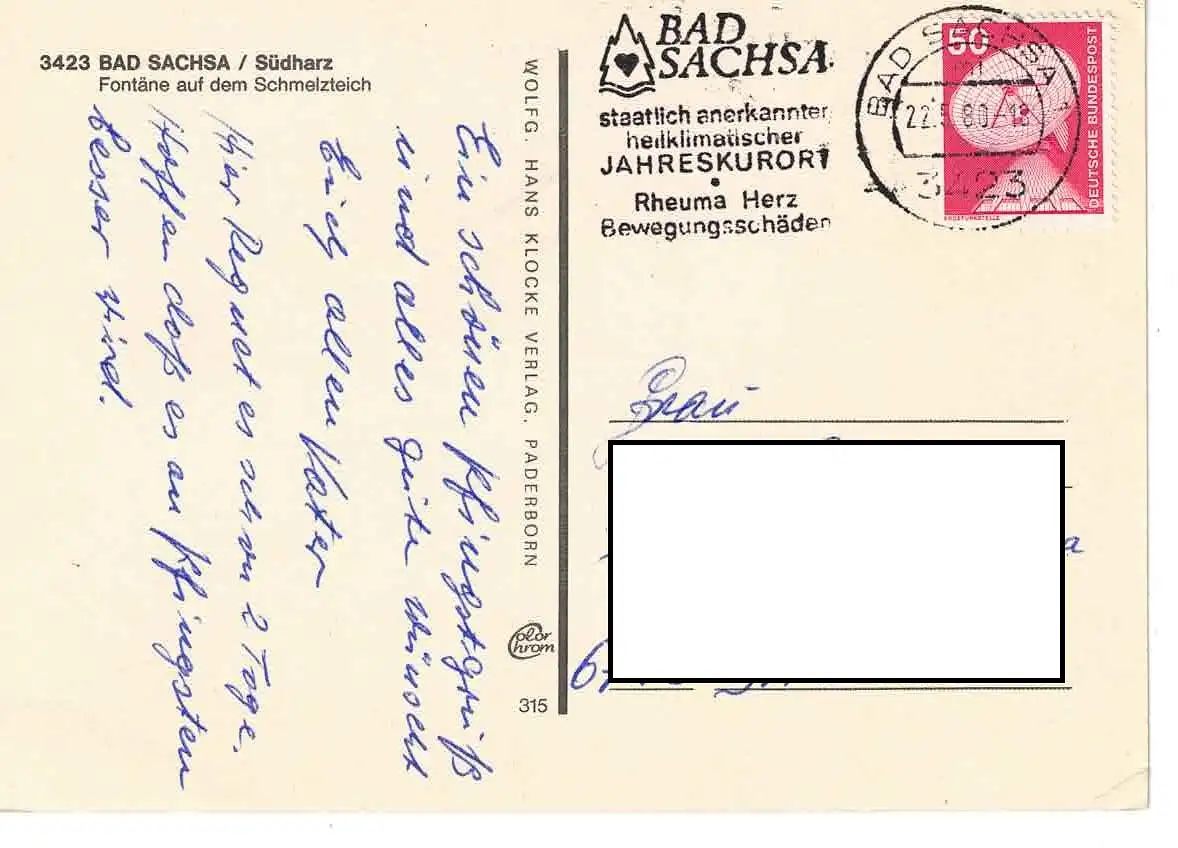 3423 BAD SACHSA / Südharz
Fontäne auf dem Schmelzteich
Ein schönen Pfingstgruß
und alles gute wünscht
Euch allen Vater
Hier Regnet es schon 2 Tage.
Hoffen daß es an Pfingsten
besser wird.
WOLFG. HANS KLOCKE VERLAG, PADERBORN
Color
Chrom
315
BAD
SACHSA
staatlich anerkannter
heilklimatischer
JAHRESKURORT
Rheuma Herz
Bewegungsschäden
BAD SACHSA 1
22.5.80-18
3423
50
DEUTSCHE BUNDESPOST
ERDEFUNKSTELLE
Frau